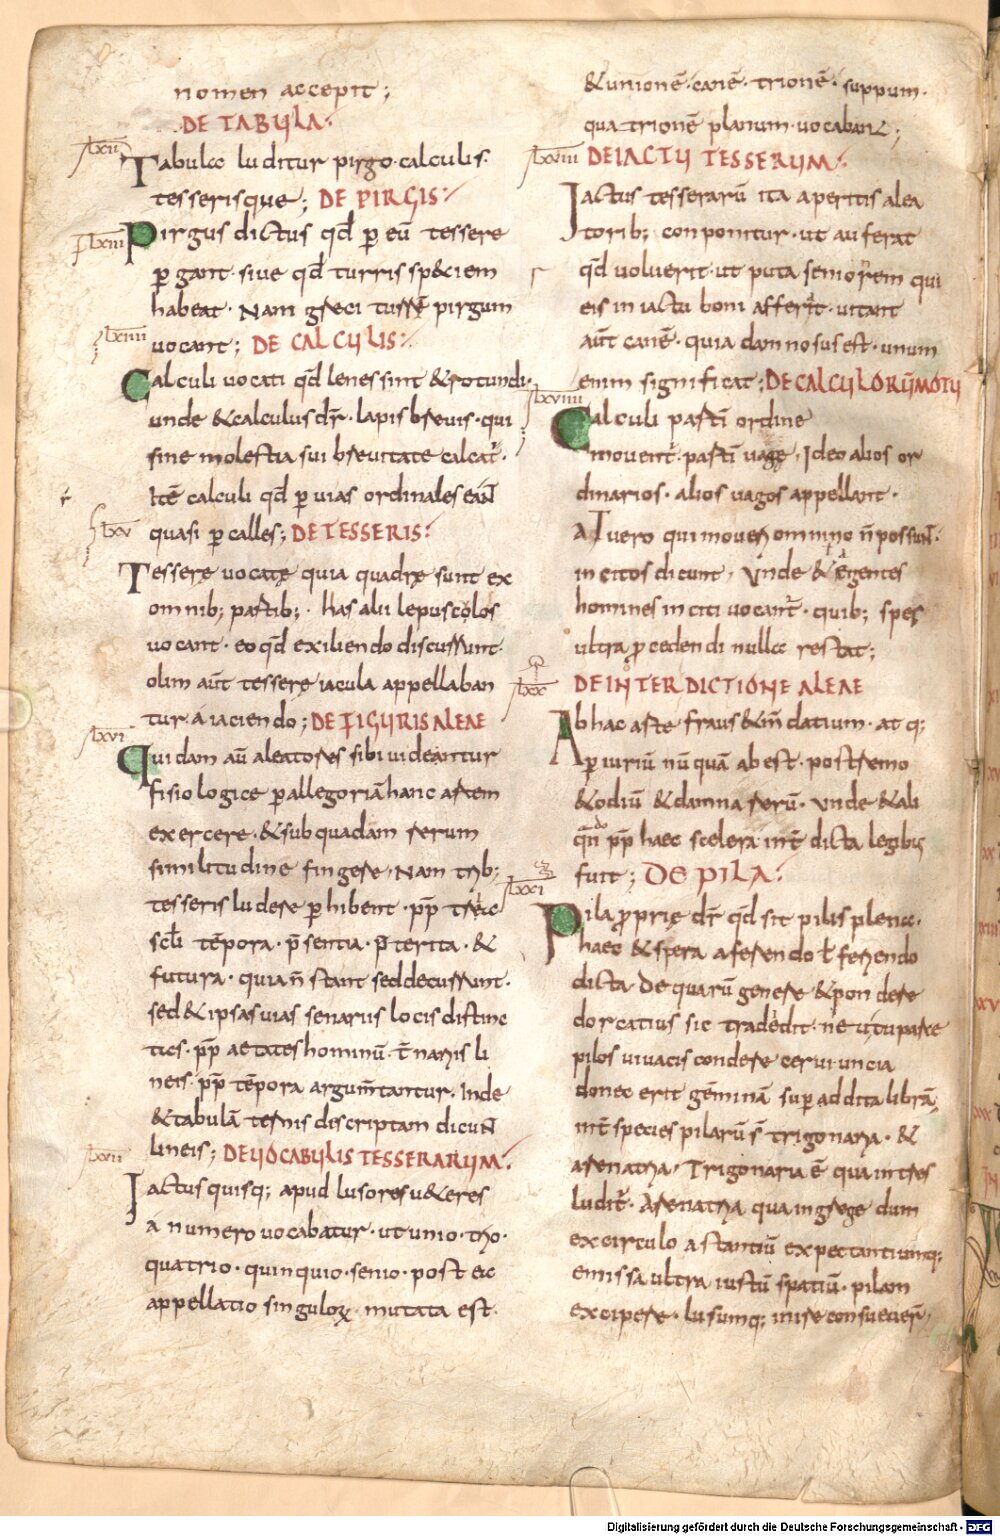 nomen accepit;
DE TABULA.
lxii Tabula luditur pirgo. calculis.
tesserisque; DE PIRGIS.
lxiii Pirgus dictus qđ p eū tessere
pgant. siue qđ turris sp&ciem
habeat. Nam greci turrē pirgum
lxiiii uocant; DE CALCULIS.
Calculi uocati qđ lenes sint & rotundi.
unde & calculus dr̄. lapis breuis. qui
sine molestia sui breuitate calcat̄.
Itē calculi qđ p uias ordinales eant
lxv quasi p calles; DE TESSERIS.
Tesserę uocatę quia quadrę sunt ex
omnib; partib;. has alii lepusculos
uocant. eo qđ exiliendo discurrunt.
olim aūt tesserę iacula appellaban
tur. á iaciendo; DE FIGURIS ALEAE
lxvi Quidam aū aleatores sibi uideantur
fisiologice p allegoriā hanc artem
exercere. & sub quadam rerum
similitudine fingere. Nam trib;
tesseris ludere phibent. pp̄ tria
scl̄i tēpora. p̄sentia. p̄terita. &
futura. quia n̄ stant sed decurrunt.
sed & ipsas uias senariis locis distinc
tas. pp̄ aetates hominū. t̄nariis li
neis. pp̄ tēpora argum̄tantur. Inde
& tabulā ternis descriptam dicunt
lxvii lineis; DE UOCABULIS TESSERARUM.
Iactus quisq; apud lusores u&eres
á numero uocabatur. ut unio. trio.
quatrio. quinquio. senio. post ec
appellatio singulorꝝ mutata est.
& unionē. canē. trionē. suppum.
quatrionē planum. uocabant;
lxviii DE IACTU TESSERUM.
Iactus tesserarū ita a peritis alea
torib; conponitur. ut auferat
qđ uoluerit. ut puta seniorem qui
eis in iactu boni afferit. uitant
aūt canē. quia damnosus est. unum
enim significat; DE CALCULORŪ MOTU
lxviiii Calculi partī ordine
mouent̄. partī uagę. Ideo alios or
dinarios. alios uagos appellant.
At uero qui moueri omnino n̄ possunt.
incitos dicunt. Unde & egentes
homines inciti uocant̄. quib; spes
ultra pcedendi nulla restat;
lxx DE INTERDICTIONE ALEAE
Ab hac arte fraus & m̄datium. atq;
p iuriū nūquā abest. postremo
& odiū & damna rerū. Unde & ali
qn̄do pp̄ haec scelera int̄dicta legibus
fuit; DE PILA.
lxxi Pila ꝓprię dr̄ qđ sit pilis plena.
haec & spera a ferendo ł feriendo
dicta De quarū genere & pondere
dorcatius sic tradedit. ne uitupare
pilos uiuacis condere cerui uncia
donec erit gēminā sup addita librā.
int̄ species pilarū s̄ trigonaria. &
arenaria. Trigonaria ē qua int̄ tres
ludit̄. Arenaria qua in grege dum
ex circulo astantiū expectantiumq;
emissa ultra iustū spatiū. pilam
excipere. lusumq; inire consueuer̄.
Digitalisierung gefördert durch die Deutsche Forschungsgemeinschaft - DFG